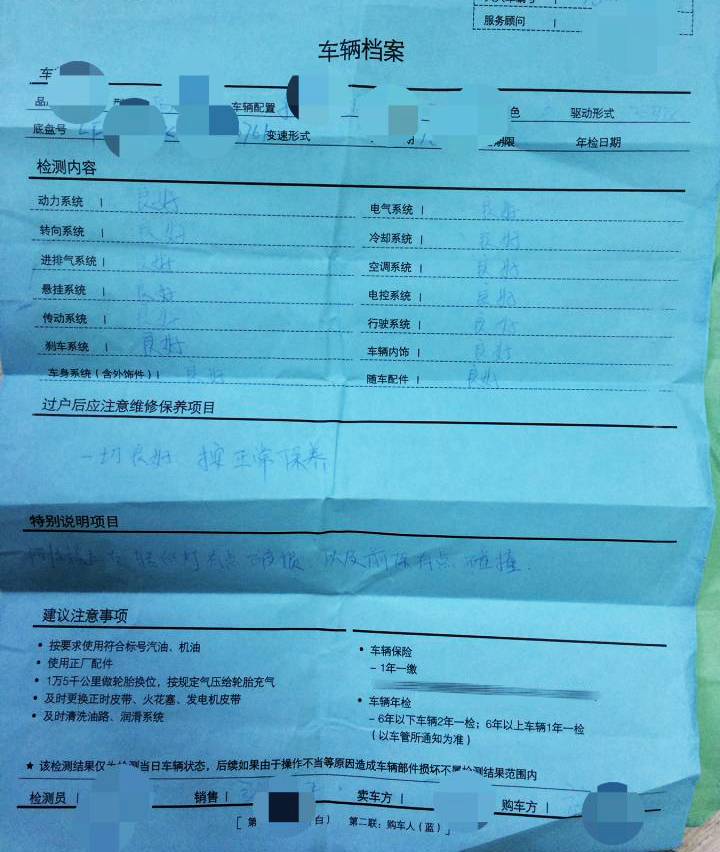 服务顾问
车辆档案
车
车辆配置 色 驱动形式
底盘号 变速形式 期限 年检日期
检测内容
动力系统 良好 电气系统 良好
转向系统 好 冷却系统 良好
进排气系统 好 空调系统 良好
悬挂系统 好 电控系统 良好
传动系统 行驶系统 良好
刹车系统 良好 车辆内饰 良好
车身系统(含外饰件) 良好 随车配件 良好
过户后应注意维修保养项目
一切良好 按正常保养
特别说明项目
有点破损 以及前保有点碰撞.
建议注意事项
• 按要求使用符合标号汽油、机油
• 使用正厂配件
• 1万5千公里做轮胎换位，按规定气压给轮胎充气
• 及时更换正时皮带、火花塞、发电机皮带
• 及时清洗油路、润滑系统
• 车辆保险
– 1年一缴
• 车辆年检
– 6年以下车辆2年一检；6年以上车辆1年一检
(以车管所通知为准)
★ 该检测结果仅为检测当日车辆状态，后续如果由于操作不当等原因造成车辆部件损坏不属检测结果范围内
检测员 销售 卖车方 购车方
[ 第 白) 第二联：购车人(蓝) ]